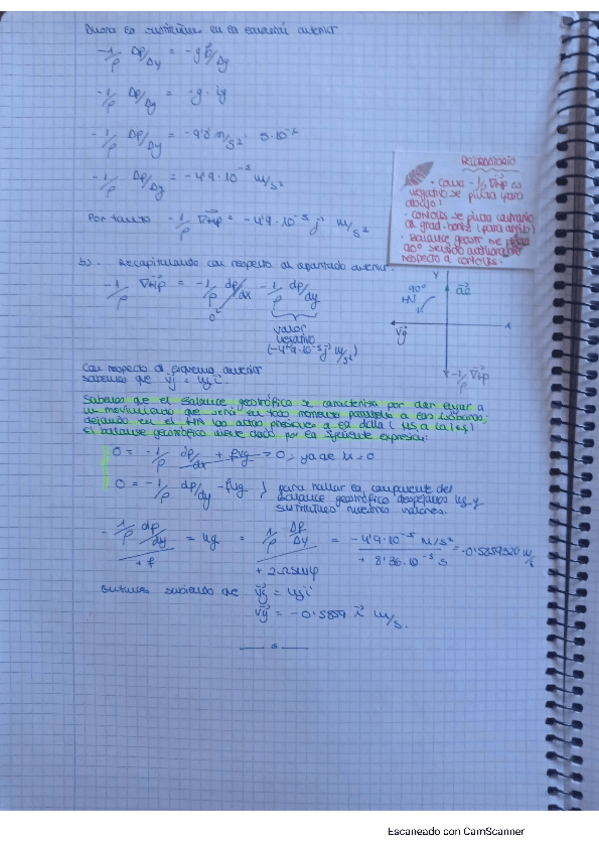 Ahora lo sustituimos en la ecuación anterior
-1/ρ Δp/Δy = -g β/Δy
-1/ρ Δp/Δy = -g · iy
-1/ρ Δp/Δy = -9'8 m/s² · 5·10⁻⁶
-1/ρ Δp/Δy = -4'9·10⁻⁵ m/s²
Por tanto -1/ρ ∇Hp = -4'9·10⁻⁵ j m/s²
RECORDATORIO
· Como -1/ρ ∇Hp es
negativo se pinta para
abajo!
· coriolis se pinta contrario
al grad-horiz (para arriba)
· Balance geostr se
90º sentido antihorario
respecto a coriolis.
b) Recapitulando con respecto al apartado anterior.
-1/ρ ∇Hp = -1/ρ dp/dx - 1/ρ dp/dy
0
valor
negativo
(-4'9·10⁻⁵ j m/s²)
90º
HN
y
x
Vg
-1/ρ ∇Hp
Con respecto al esquema anterior
sabemos que Vg = ug i.
Sabemos que el Balance geostrófico se caracteriza por dar lugar a
un movimiento que será en todo momento paralelo a las isobaras,
dejando en el HN las altas presiones a la dcha
El balance geostrófico viene dado por la siguiente expresión:
0 = -1/ρ dp/dx + fvg = 0, ya que
0 = -1/ρ dp/dy - fug } para hallar la componente del
balance geostrófico despejamos ug y
sustituimos nuestros valores.
-1/ρ dp/dy / +f = ug = 1/ρ Δp/Δy / +2·Ωsenφ = -4'9·10⁻⁵ m/s² / +8'36·10⁻⁵ s = -0'5859320 m/s
Entonces sabiendo que Vg = ug i
Vg = -0'5859 i m/s.
Escaneado con CamScanner